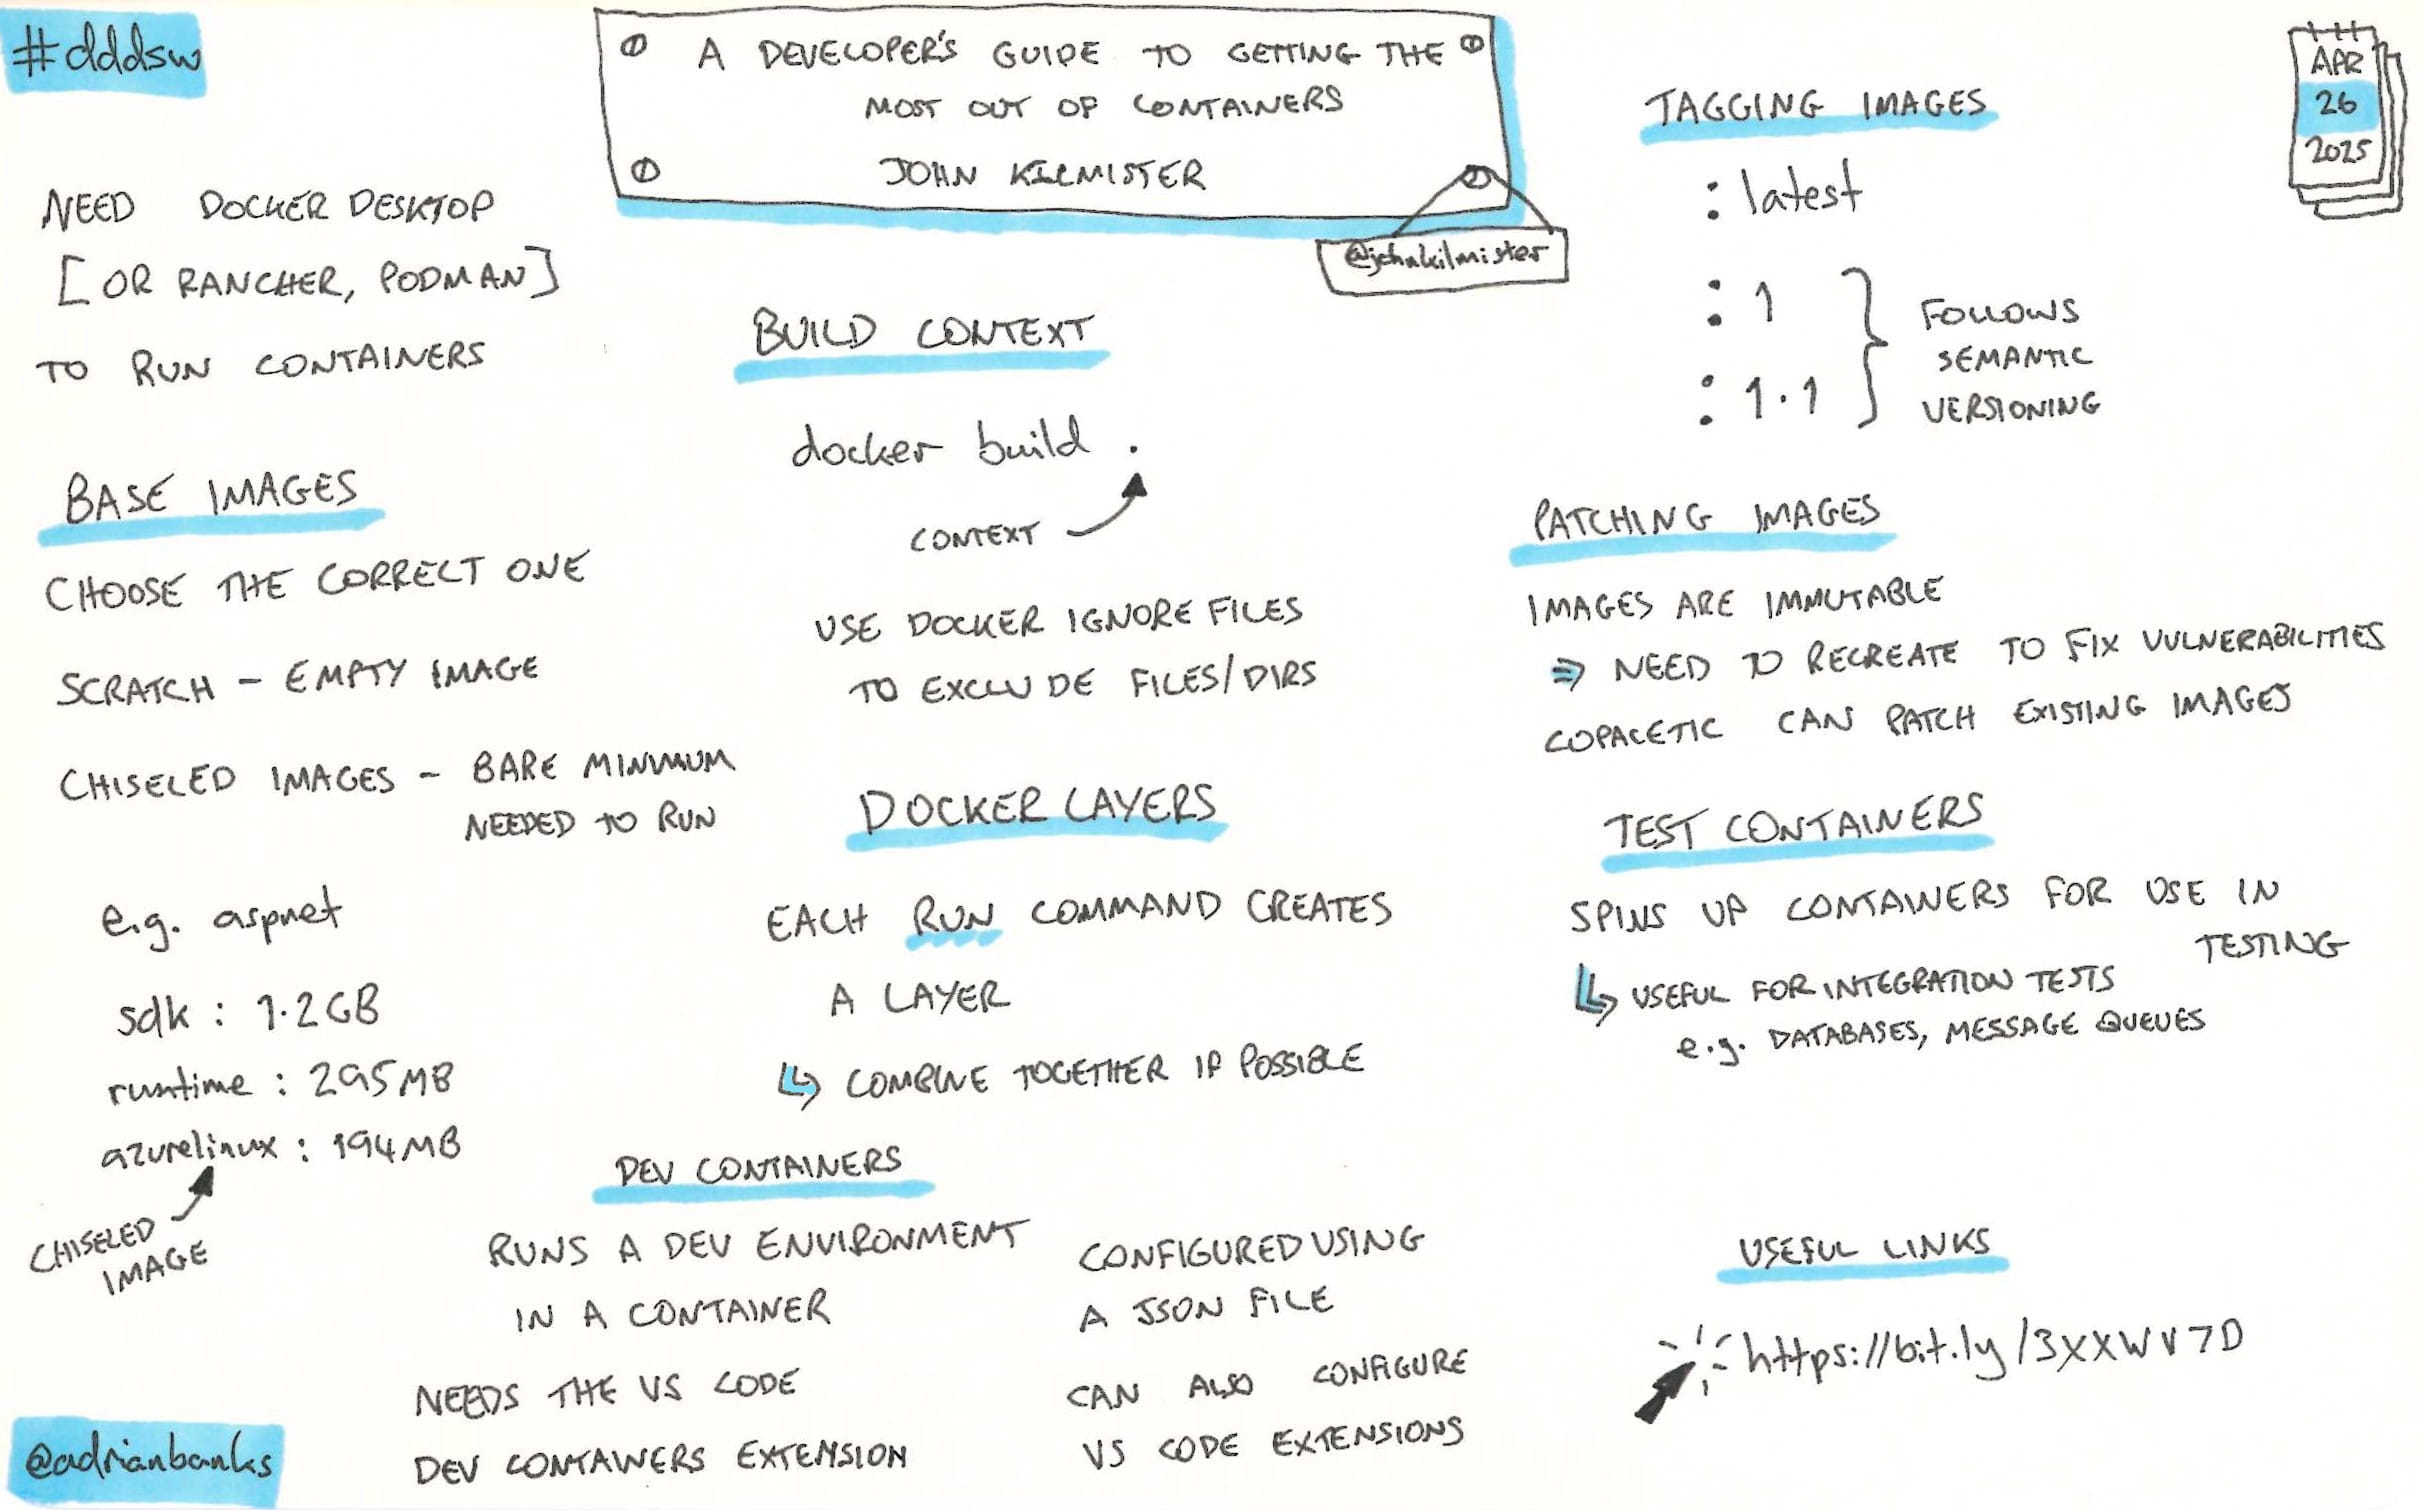 #dddsw
A DEVELOPER'S GUIDE TO GETTING THE
MOST OUT OF CONTAINERS
JOHN KILMISTER
@johnkilmister
APR
26
2025
NEED DOCKER DESKTOP
[OR RANCHER, PODMAN]
TO RUN CONTAINERS
BASE IMAGES
CHOOSE THE CORRECT ONE
SCRATCH - EMPTY IMAGE
CHISELED IMAGES - BARE MINIMUM
NEEDED TO RUN
e.g. aspnet
sdk : 1.2GB
runtime : 295MB
azurelinux : 194MB
CHISELED
IMAGE
BUILD CONTEXT
docker build .
CONTEXT
USE DOCKER IGNORE FILES
TO EXCLUDE FILES/DIRS
DOCKER LAYERS
EACH RUN COMMAND CREATES
A LAYER
COMBINE TOGETHER IF POSSIBLE
DEV CONTAINERS
RUNS A DEV ENVIRONMENT
IN A CONTAINER
NEEDS THE VS CODE
DEV CONTAINERS EXTENSION
CONFIGURED USING
A JSON FILE
CAN ALSO CONFIGURE
VS CODE EXTENSIONS
TAGGING IMAGES
: latest
: 1
: 1.1
FOLLOWS
SEMANTIC
VERSIONING
PATCHING IMAGES
IMAGES ARE IMMUTABLE
⇒ NEED TO RECREATE TO FIX VULNERABILITIES
COPACETIC CAN PATCH EXISTING IMAGES
TEST CONTAINERS
SPINS UP CONTAINERS FOR USE IN
TESTING
USEFUL FOR INTEGRATION TESTS
e.g. DATABASES, MESSAGE QUEUES
USEFUL LINKS
https://bit.ly/3XXWV7D
@adrianbanks